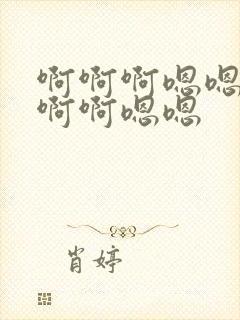 啊啊啊嗯嗯
啊啊嗯嗯
肖婷